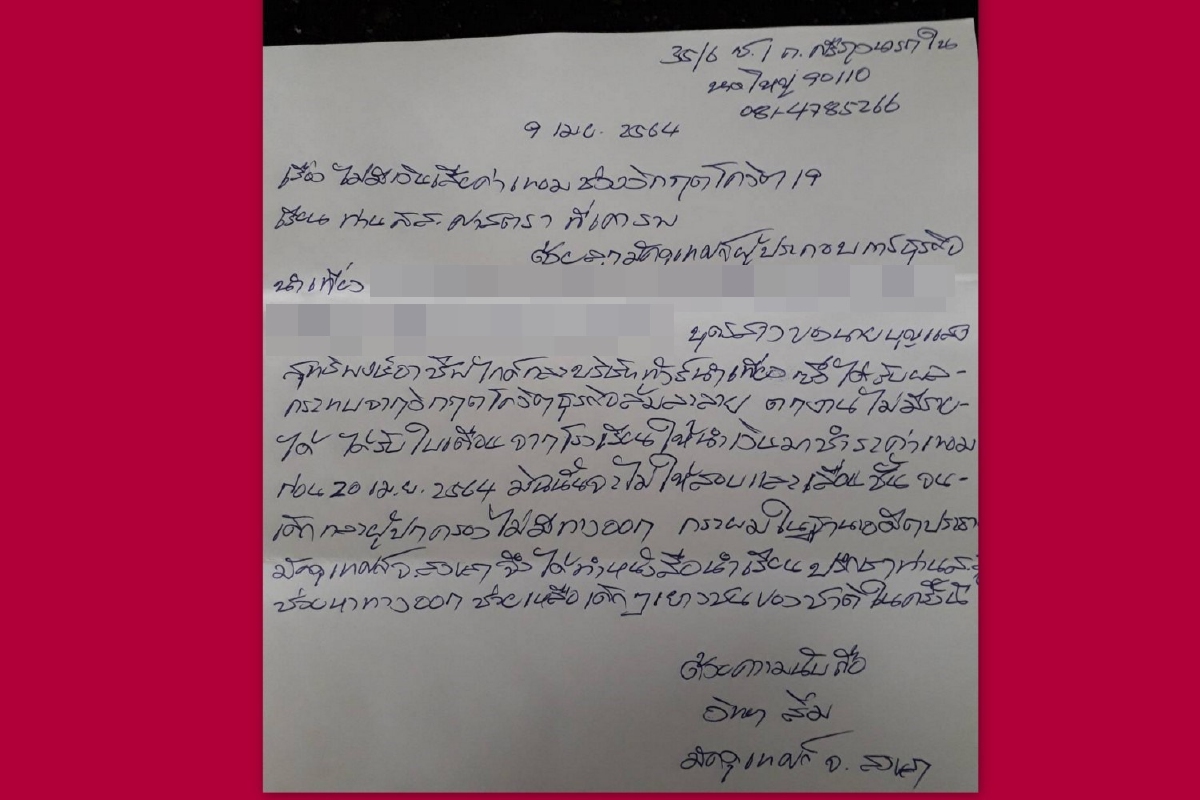 35/6 ซ.1 ถ. ศรีภูวนารถใน
หาดใหญ่ 90110
081-4785266
9 เม.ย. 2564
เรื่อง ไม่มีเงินเสียค่าเทอม ช่วงวิกฤตโควิด 19
เรียน ท่าน ส.ส. ศาสตรา ที่เคารพ
ด้วย มัคคุเทศก์ผู้ประกอบการธุรกิจ
นำเที่ยว
บุตรสาวของนายบุญแสง
สุทธิพงษ์อาชีพไกด์และบริษัททัวร์นำเที่ยว ซึ่งได้รับผล-
กระทบจากวิกฤตโควิดธุรกิจล้มละลาย ตกงานไม่มีราย-
ได้ ได้รับใบเตือนจากโรงเรียนให้นำเงินมาชำระค่าเทอม
ก่อน 20 เม.ย. 2564 มิฉนั้นจะไม่ให้สอบและเลื่อนชั้น จน-
เด็กและผู้ปกครองไม่มีทางออก กระผมในฐานะอดีตประธาน
มัคคุเทศก์จ.สงขลาจึงได้ทำหนังสือนำเรียนปรึกษาท่านส.ส
ช่วยหาทางออก ช่วยเหลือเด็กๆเยาวชนของชาติในครั้งนี้
ด้วยความนับถือ
วิทยา ลิ่ม
มัคคุเทศก์ จ. สงขลา